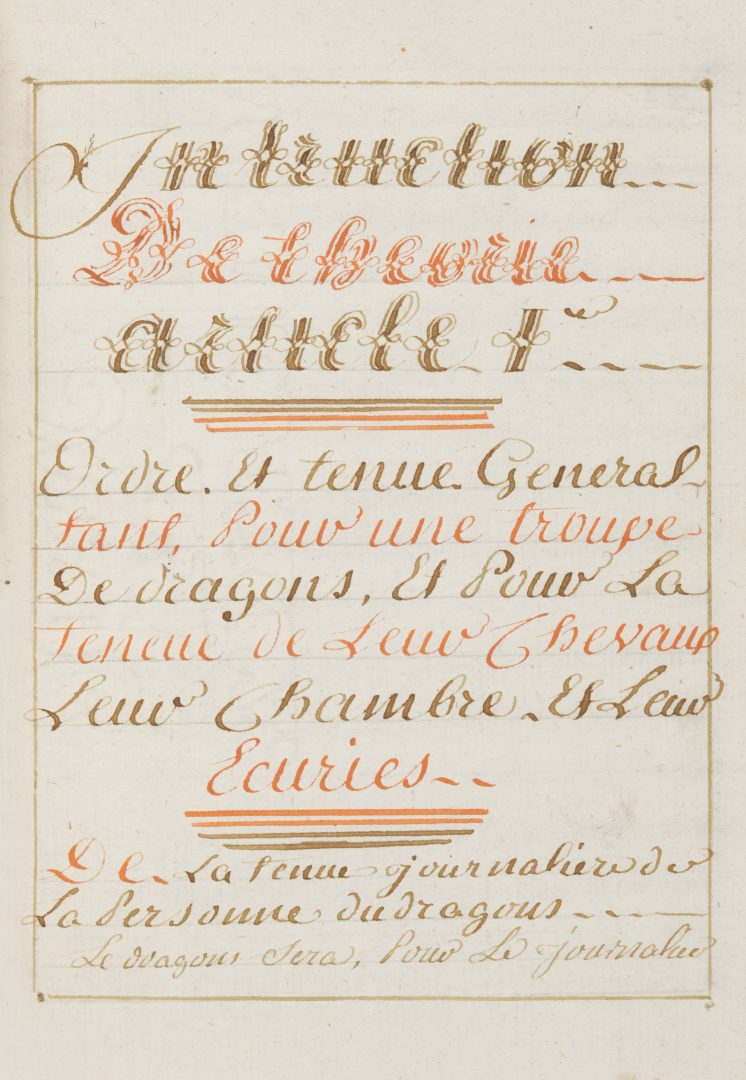 Intruction
De theorie
article 1er
Ordre. Et tenue General
tant, Pour une troupe
De dragons, Et Pour La
teneue de Leur Chevaux
Leur Chambre. Et Leur
Ecuries
De La tenue journaliere de
La Personne du dragons
Le dragons Sera, Pour Le journalier